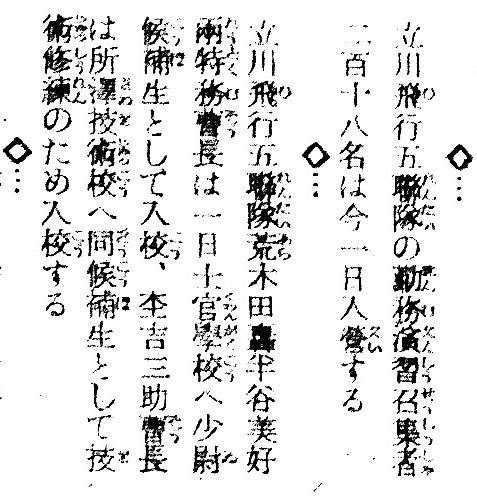 ◇…立川飛行五聯隊の勤務演習召集者
二百十八名は今一日入營する
◇…立川飛行五聯隊荒木田 半谷美好
兩特務曹長は一日士官學校へ少尉
候補生として入校、 吉三助曹長
は所澤技術校へ同候補生として技
術修練のため入校する
◇…